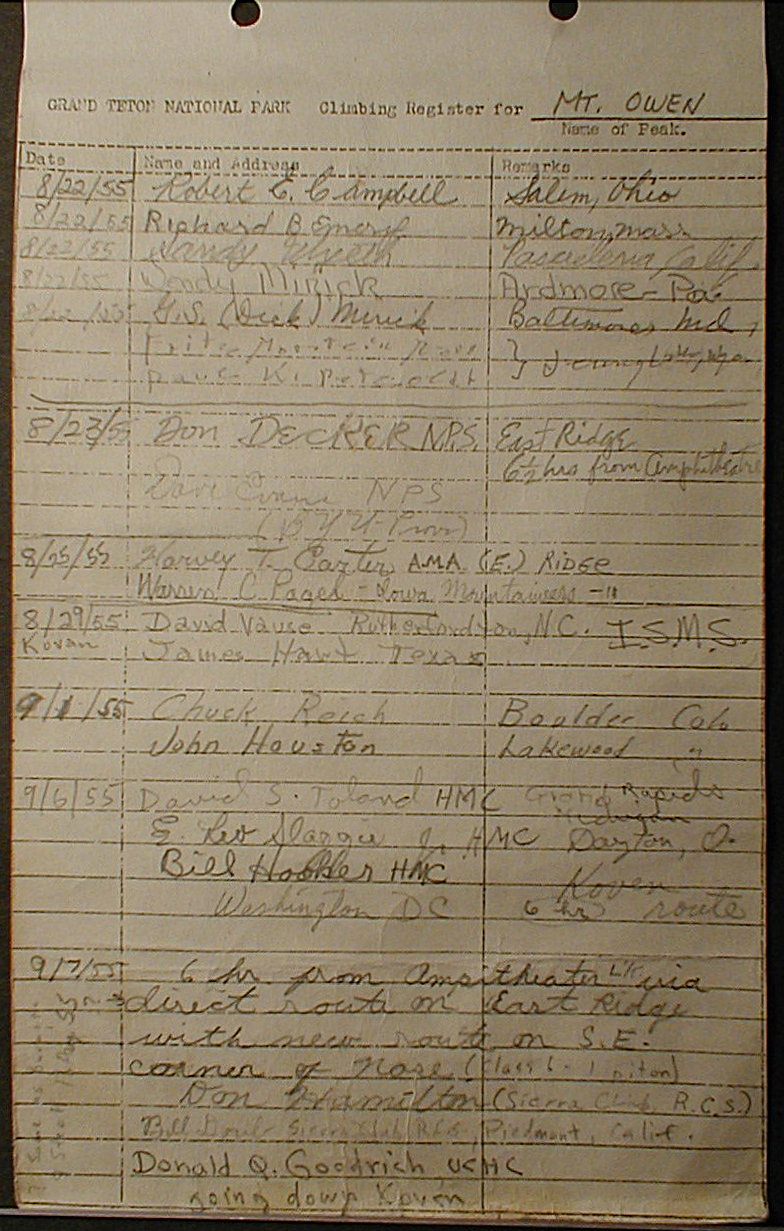 GRAND TETON NATIONAL PARK Climbing Register for MT. OWEN
Name of Peak.
Date Name and Address Remarks
8/22/55 Robert E. Campbell Salem, Ohio
8/22/55 Richard B Emery Milton, Mass
8/22/55 Sandy Pasadena, Calif.
8/22/55 Wendy Mirick Ardmore - Pa.
8/22/55 G.S. (Dick) Mirick Baltimore, Md,
Fritz
Dave K.
8/23/55 Don DECKER NPS, East Ridge
6½ hrs from Amphitheatre
Dave Evans NPS
(BYU-Provo)
8/25/55 Harvey T. Carter A.M.A. (E.) RIDGE
Warren C Pagel - Iowa Mountaineers - "
8/29/55 David Vause Rutherfordton, N.C. I.S.M.S.
Koven James Hart Texas
9/1/55 Chuck Reich Boulder Colo
John Houston Lakewood "
9/6/55 David S. Toland HMC Grand Rapids
Michigan
E. Jr. HMC Dayton, O.
Bill HMC Koven
Washington DC 6 hr route
9/7/55 6 hr. from Ampitheater Lk via
direct route on East Ridge
with new route on S.E.
corner of Nose (class 6 - 1 piton)
Don Hamilton (Sierra Club R.C.S.)
Bill Sierra Club RCS, Piedmont, Calif.
Donald Q. Goodrich UCHC
going down Koven